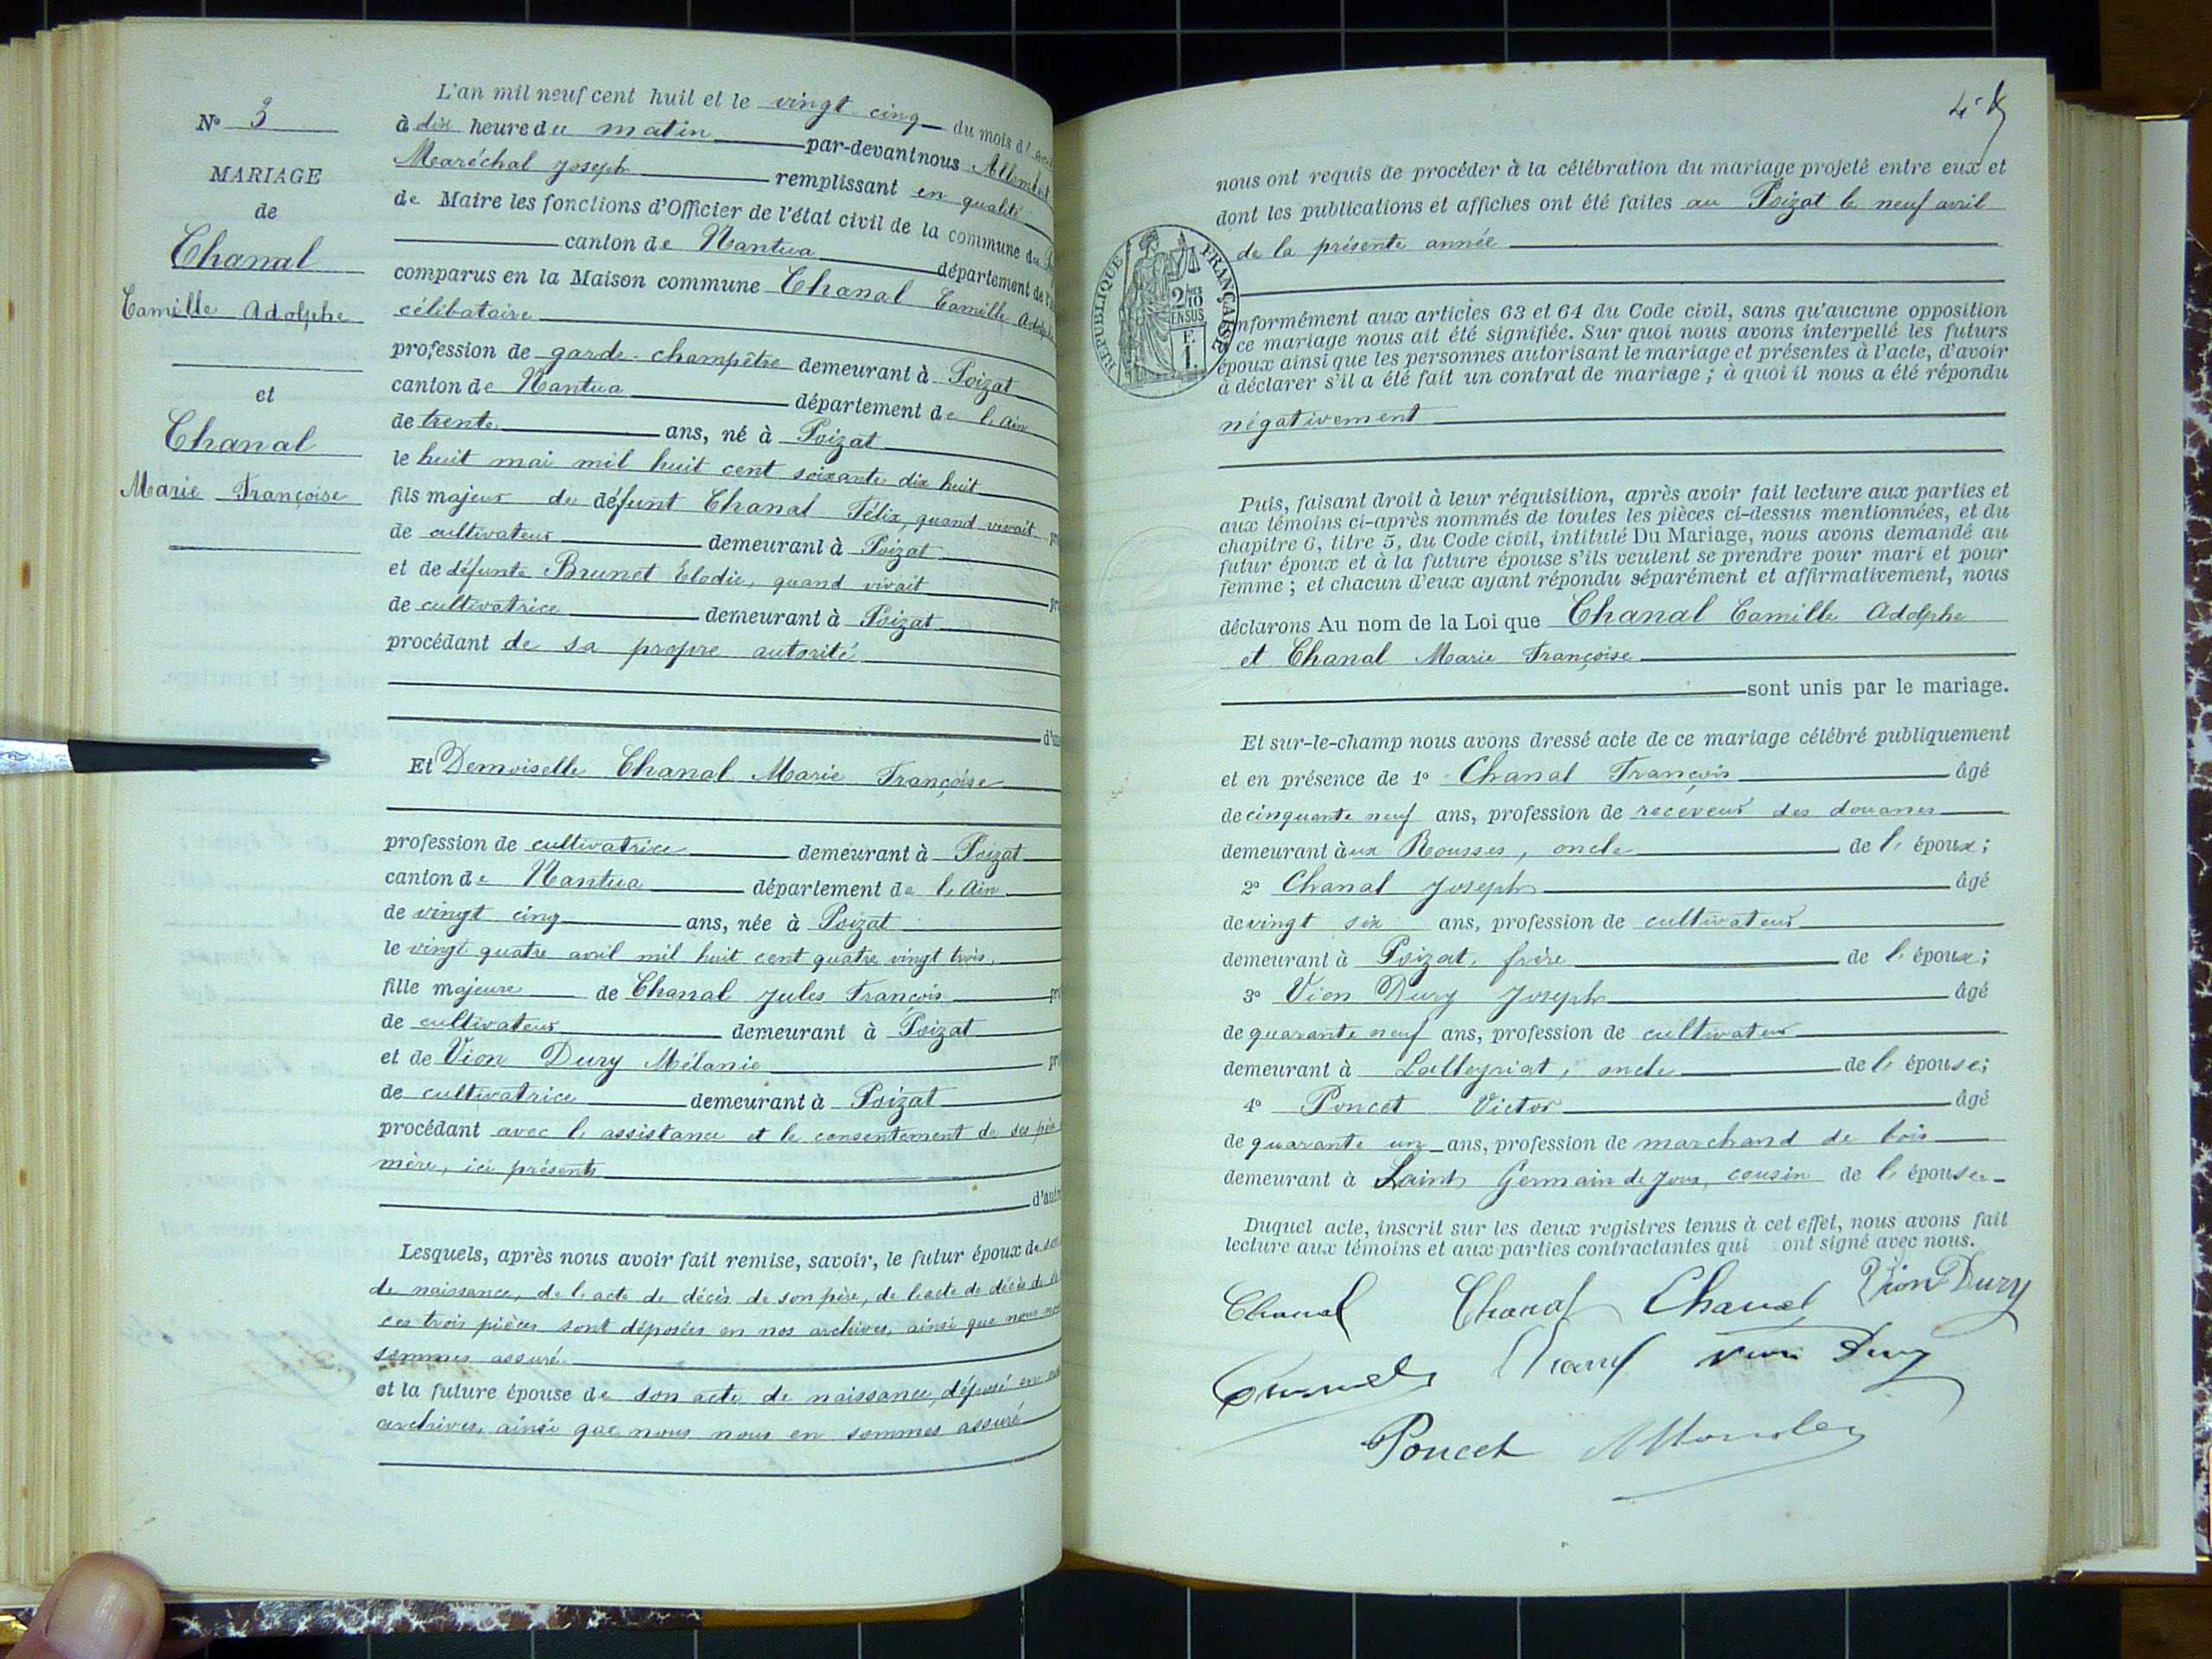 N° 3
MARIAGE
de
Chanal
Camille Adolphe
et
Chanal
Marie Françoise
L'an mil neuf cent huit et le vingt cinq du mois d'
à dix heure du matin par-devant nous
Maréchal Joseph remplissant en qualité
de Maire les fonctions d'Officier de l'état civil de la commune du
canton de Nantua département de
comparus en la Maison commune Chanal Camille Adolphe
célibataire
profession de garde-champêtre demeurant à Poizat
canton de Nantua département de l'Ain
de trente ans, né à Poizat
le huit mai mil huit cent soixante dix huit
fils majeur de défunt Chanal Félix, quand vivait
de cultivateur demeurant à Poizat
et de défunte Brunet Élodie, quand vivait
de cultivatrice demeurant à Poizat
procédant de sa propre autorité
Et Demoiselle Chanal Marie Françoise
profession de cultivatrice demeurant à Poizat
canton de Nantua département de l'Ain
de vingt cinq ans, née à Poizat
le vingt quatre avril mil huit cent quatre vingt trois,
fille majeure de Chanal Jules François
de cultivateur demeurant à Poizat
et de Vion Dury Mélanie
de cultivatrice demeurant à Poizat
procédant avec l'assistance et le consentement de ses père
mère, ici présents
Lesquels, après nous avoir fait remise, savoir, le futur époux de son
de naissance, de l'acte de décès de son père, de l'acte de décès de
ces trois pièces sont déposées en nos archives, ainsi que nous nous
sommes assuré
et la future épouse de son acte de naissance, déposé en nos
archives, ainsi que nous nous en sommes assuré
nous ont requis de procéder à la célébration du mariage projeté entre eux et
dont les publications et affiches ont été faites au Poizat le neuf avril
de la présente année
REPUBLIQUE FRANÇAISE
2/10
EN SUS
F.
1.
conformément aux articles 63 et 64 du Code civil, sans qu'aucune opposition
à ce mariage nous ait été signifiée. Sur quoi nous avons interpellé les futurs
époux ainsi que les personnes autorisant le mariage et présentes à l'acte, d'avoir
à déclarer s'il a été fait un contrat de mariage ; à quoi il nous a été répondu
négativement
Puis, faisant droit à leur réquisition, après avoir fait lecture aux parties et
aux témoins ci-après nommés de toutes les pièces ci-dessus mentionnées, et du
chapitre 6, titre 5, du Code civil, intitulé Du Mariage, nous avons demandé au
futur époux et à la future épouse s'ils veulent se prendre pour mari et pour
femme ; et chacun d'eux ayant répondu séparément et affirmativement, nous
déclarons Au nom de la Loi que Chanal Camille Adolphe
et Chanal Marie Françoise
sont unis par le mariage.
Et sur-le-champ nous avons dressé acte de ce mariage célébré publiquement
et en présence de 1° Chanal François âgé
de cinquante neuf ans, profession de receveur des douanes
demeurant aux Rousses, oncle de l'époux;
2° Chanal Joseph âgé
de vingt six ans, profession de cultivateur
demeurant à Poizat, frère de l'époux;
3° Vion Dury Joseph âgé
de quarante neuf ans, profession de cultivateur
demeurant à Lalleyriat, oncle de l'épouse;
4° Poncet Victor âgé
de quarante un ans, profession de marchand de bois
demeurant à Saint Germain de Joux, cousin de l'épouse
Duquel acte, inscrit sur les deux registres tenus à cet effet, nous avons fait
lecture aux témoins et aux parties contractantes qui ont signé avec nous.
Chanal Chanal Chanal Vion Dury
Chanal Vion Dury
Poncet